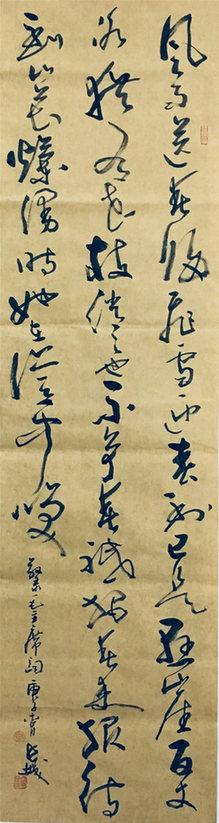 風雨送春歸飛雪迎春到已是懸崖百丈
冰猶有花枝俏俏也不爭春祇把春來報待
到山花爛漫時她在叢中笑
毛主席詞 庚子 長城